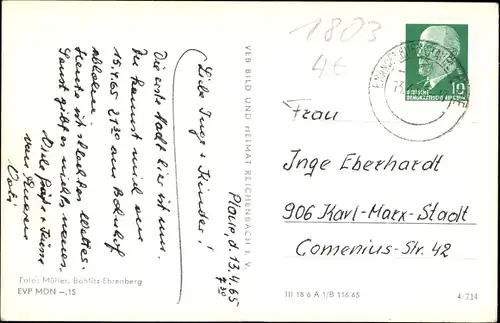 1803
4€
Plaue, d. 13.4.65
7.30
Liebe Inge + Kinder!
Die erste Nacht hier ist um.
Du kannst mich am
15.4.65 21.30 am Bahnhof
abholen.
Heute ist schlechtes Wetter.
Sonst gibt es nichts neues.
Viele Grüße + Küsse
von Eurem
Vati
VEB BILD UND HEIMAT REICHENBACH I. V.
Foto: Müller, Böhlitz-Ehrenberg
EVP MDN –,15
10
DEUTSCHE
DEMOKRATISCHE REPUBLIK
Frau
Inge Eberhardt
906 Karl-Marx-Stadt
Comenius-Str. 42
III 18 6 A 1/B 116/65
4/714